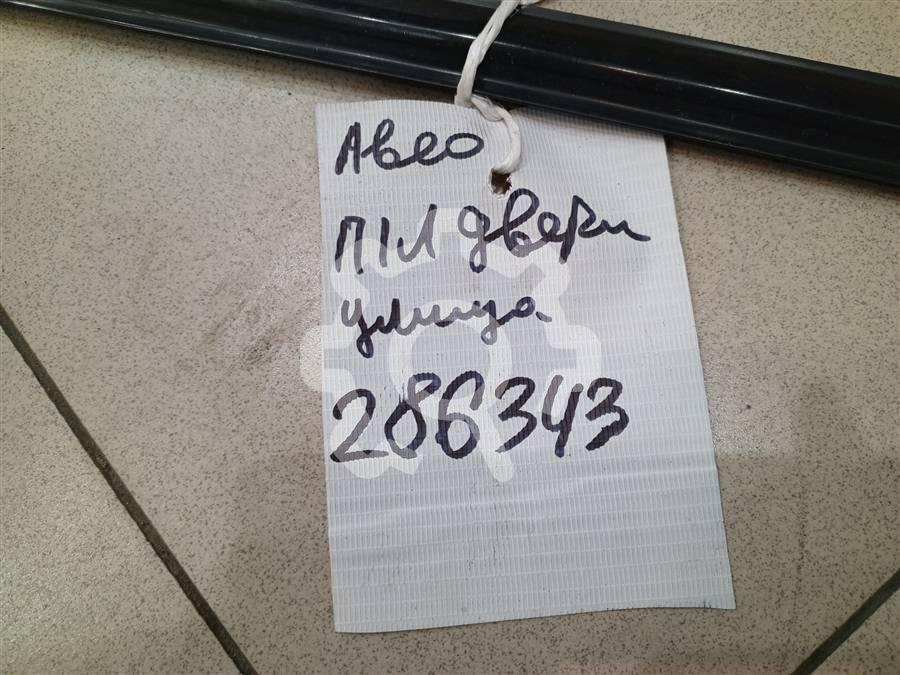 Авео
П/Л двери
улица
286343